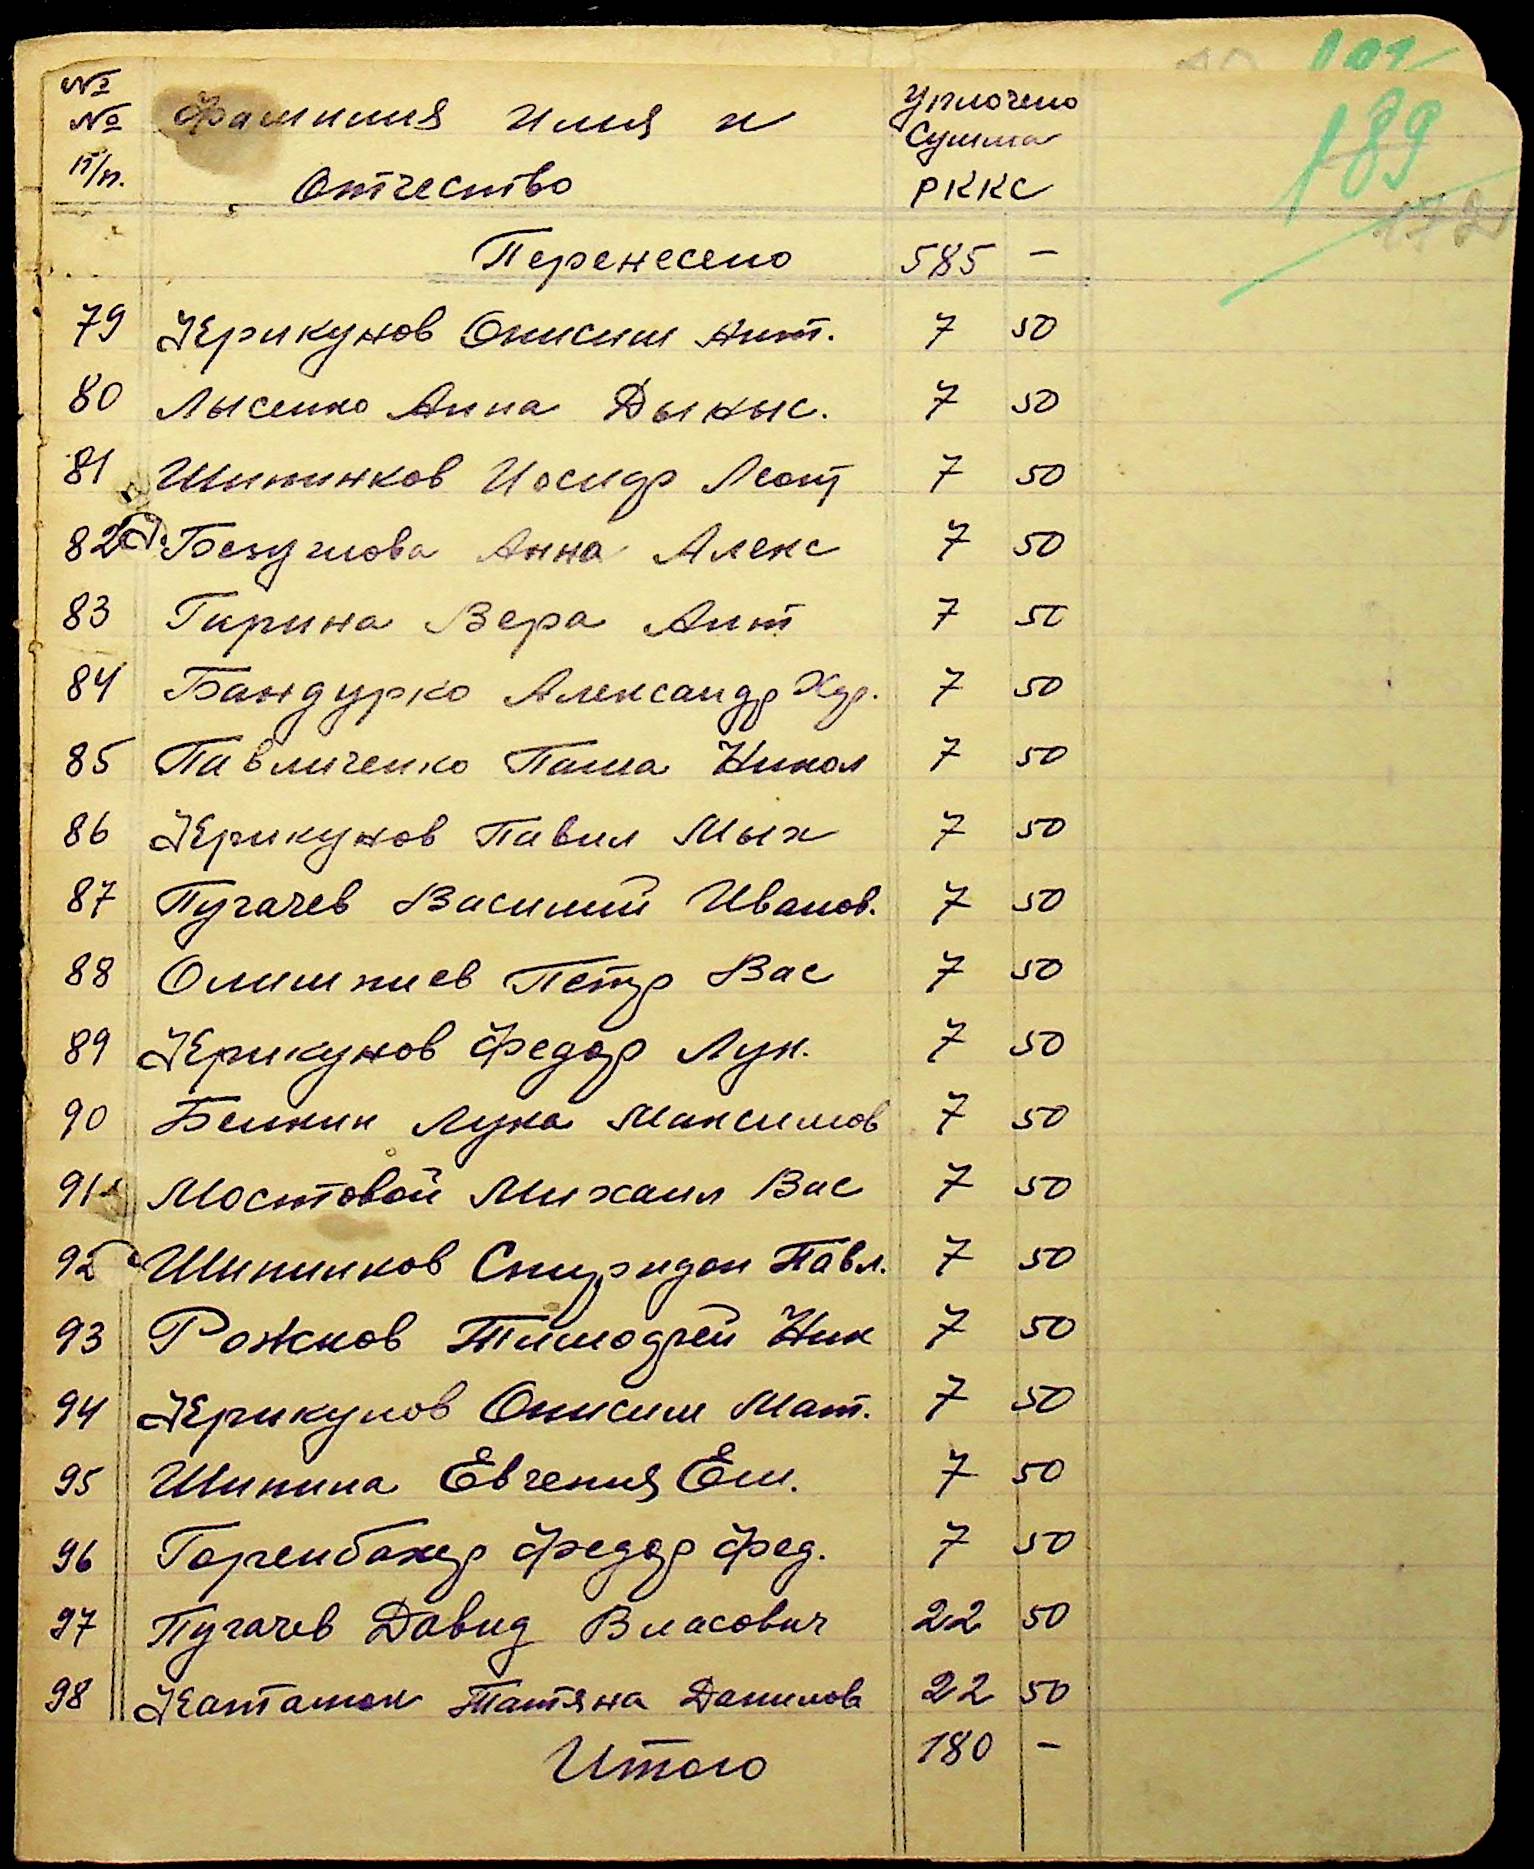 №
№
п/п.
Фамилия Имя и
Отчество
Уплочено
Сумма
РККС
189
Перенесено 585 —
79 Керикунов Онисим Ант. 7 50
80 Лысенко Анна Дыкыс. 7 50
81 Шипинков Иосиф Леонт 7 50
82 Безуглова Анна Алекс 7 50
83 Гирина Вера Ант 7 50
84 Бандурко Александр 7 50
85 Павличенко Паша Никол 7 50
86 Керикунов Павил Мых 7 50
87 Пугачев Василий Иванов. 7 50
88 Олимпиев Петр Вас 7 50
89 Керикунов Федор Лук. 7 50
90 Белкин Лука Максимов 7 50
91 Мостовой Михаил Вас 7 50
92 Шипинков Спиридон Павл. 7 50
93 Рожков Тимофей Ник 7 50
94 Керикунов Онисим Мат. 7 50
95 Шипина Евгения Ем. 7 50
96 Федор Фед. 7 50
97 Пугачев Давид Власович 22 50
98 Татяна Данилова 22 50
Итого 180 —